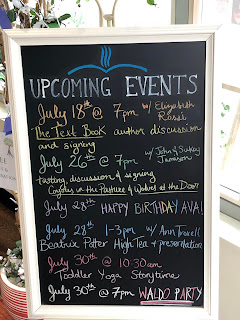 UPCOMING EVENTS
July 18th @ 7pm w/ Elizabeth Rossi
The Text Book author discussion
and signing
July 26th @ 7pm w/ John & Sukey Jamison
tasting, discussion & signing
Coyotes in the Pasture & Wolves at the Door
July 28th HAPPY BIRTHDAY AVA!
July 28th 1-3pm w/ Ann Troxell
Beatrix Potter High Tea & presentation
July 30th @ 10:30am
Toddler Yoga Storytime
July 30th @ 7pm WALDO PARTY